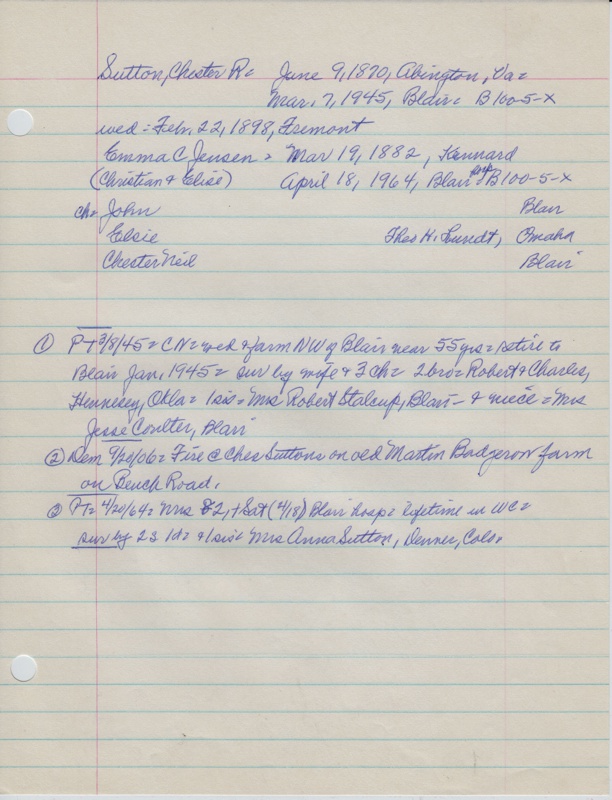 Sutton, Chester R = June 9, 1870, Abington, Va =
Mar. 7, 1945, Blair = B100-5-X
wed = Febr. 22, 1898, Fremont
Emma C Jensen = Mar 19, 1882, Kennard
(Christian & Elise) April 18, 1964, Blair hosp = B100-5-X
ch = John Blair
Elsie Theo H. Lundt, Omaha
Chester Neil Blair
① PT 3/8/45 = CN = wed & farm NW of Blair near 55 yrs = retire to
Blair Jan, 1945 = sur by wife & 3 ch = 2 bro = Robert & Charles,
Hennesey, Okla = 1 sis = Mrs Robert Stalcup, Blair - & niece = Mrs
Jesse Coulter, Blair
② Dem 9/20/06 = Fire @ Ches Suttons on old Martin Badgerow farm
on Bench Road.
③ PT = 4/20/64 = Mrs 82, + Sat (4/18) Blair hosp = lifetime in WC =
sur by 2s 1d = & 1 sis = Mrs Anna Sutton, Denver, Colo.